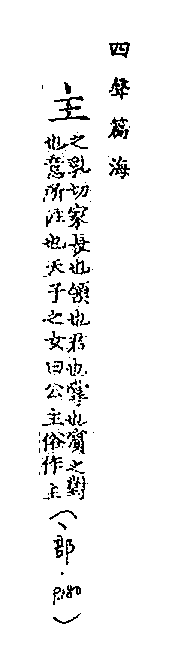 四聲篇海
主
之乳切家長也領也君也掌也賓之對
也意所注也天子之女曰公主俗作主
(丶部·P.180)